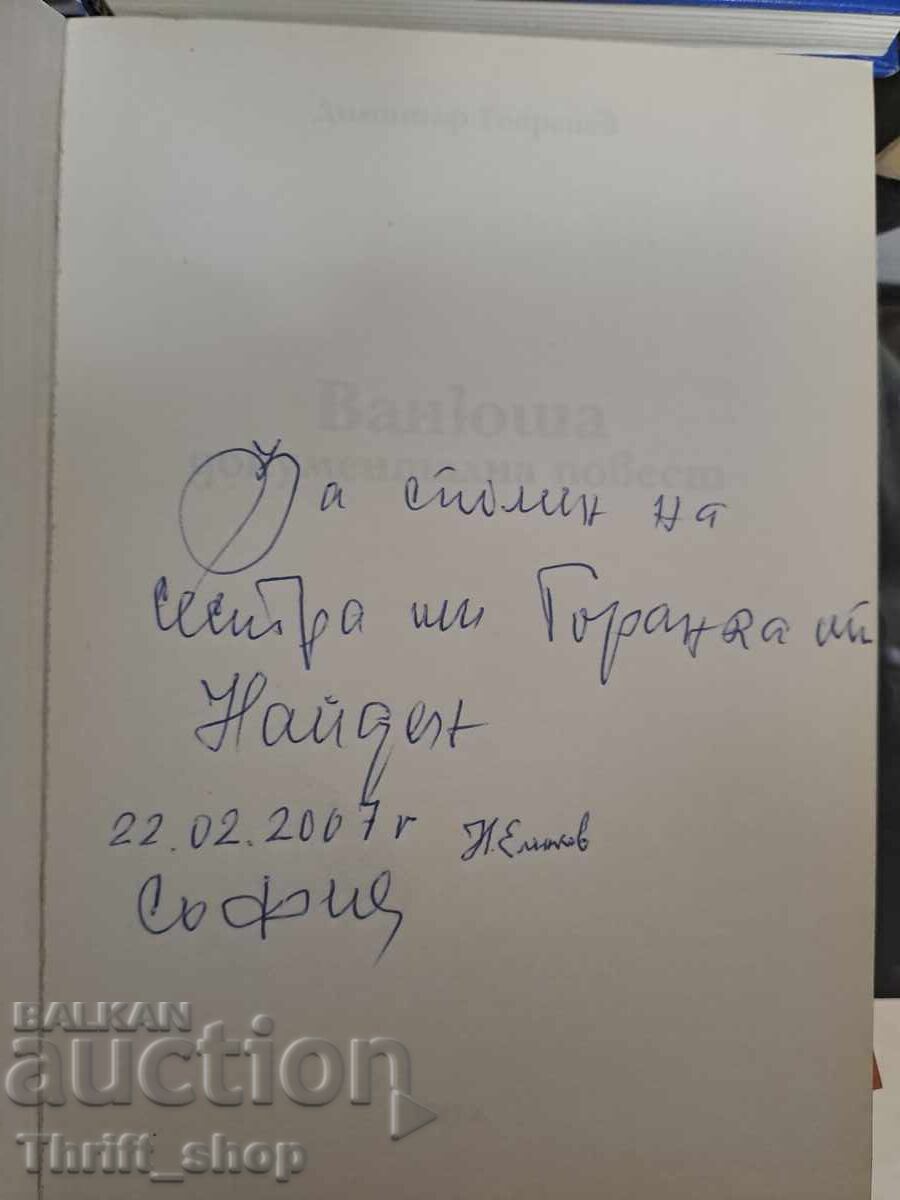 Димитър Георгиев
Ванюша
документална повест
За спомен на
сестра ми Горанка от
Найден
22.02.2007 г
София
BALKAN
auction
Thrift_shop